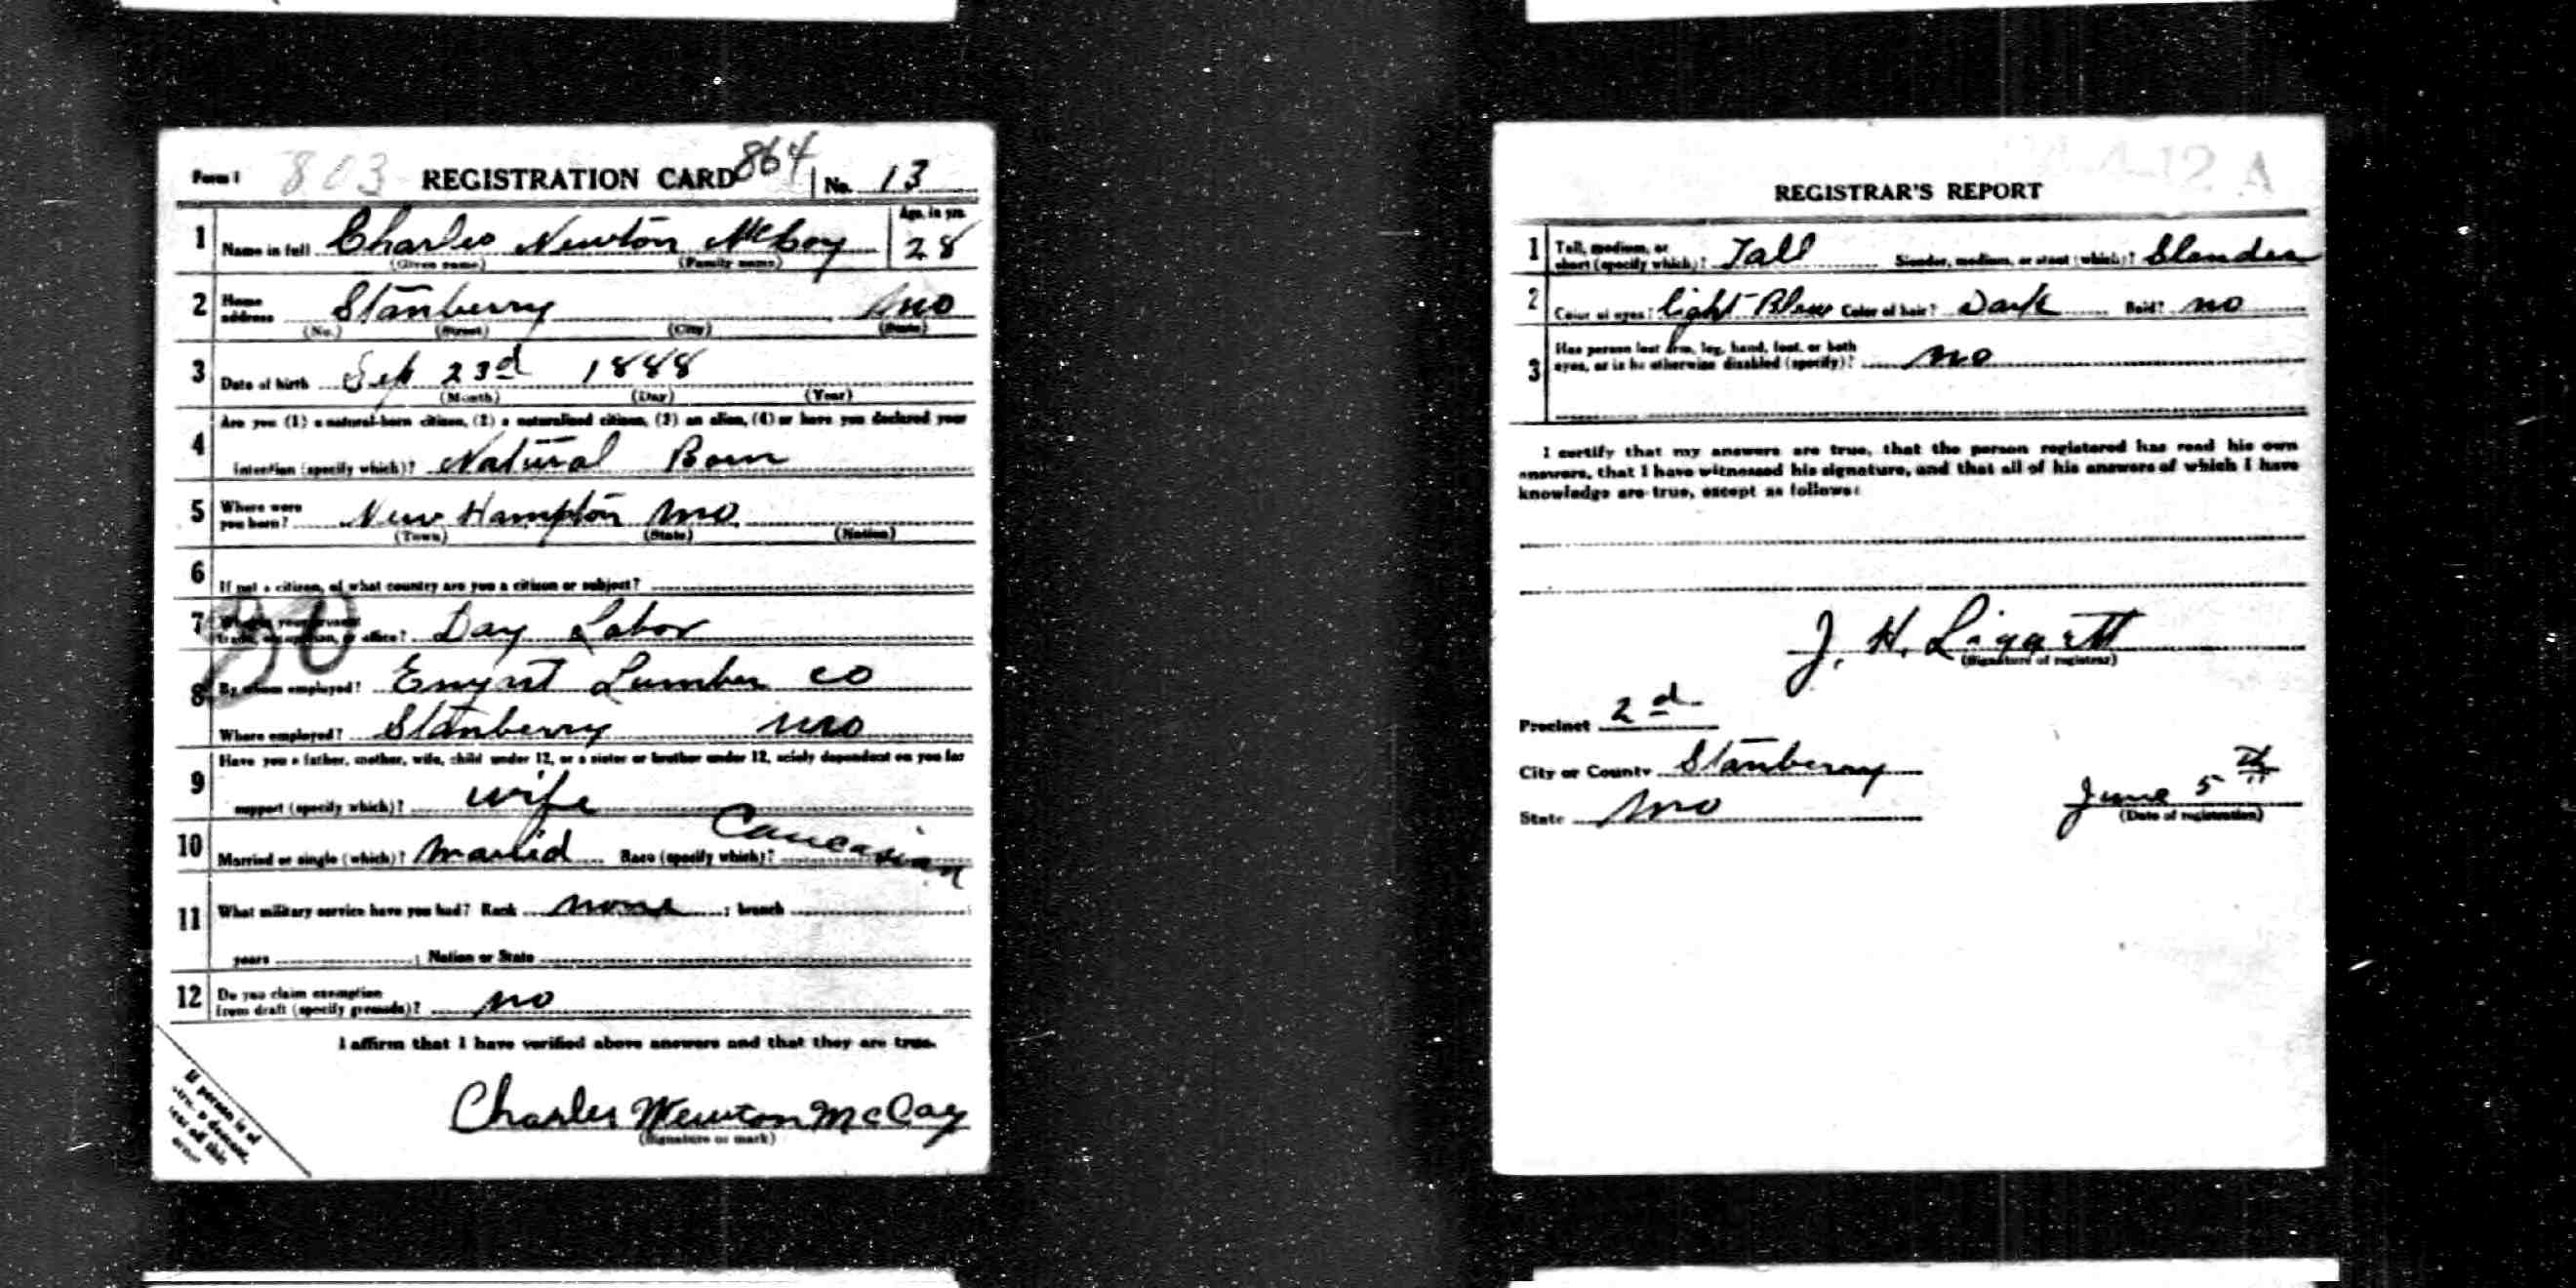 Form 1 803 REGISTRATION CARD 864 No. 13
1 Name in full Charles Newton McCoy Age, in yrs. 28
(Given name) (Family name)
2 Home address Stanberry Mo
(No.) (Street) (City) (State)
3 Date of birth Sep 23d 1888
(Month) (Day) (Year)
4 Are you (1) a natural-born citizen, (2) a naturalized citizen, (3) an alien, (4) or have you declared your
intention (specify which)? Natural Born
5 Where were you born? New Hampton Mo
(Town) (State) (Nation)
6 If not a citizen, of what country are you a citizen or subject?
7 What is your present trade, occupation, or office? Day Labor
8 By whom employed? Enyart Lumber Co
Where employed? Stanberry Mo
9 Have you a father, mother, wife, child under 12, or a sister or brother under 12, solely dependent on you for
support (specify which)? wife
10 Married or single (which)? Maried Race (specify which)? Caucasian
11 What military service have you had? Rank none ; branch
years ; Nation or State
12 Do you claim exemption from draft (specify grounds)? no
I affirm that I have verified above answers and that they are true.
Charles Newton McCoy
(Signature or mark)
If person is of
off this
REGISTRAR'S REPORT
1 Tall, medium, or short (specify which)? Tall Slender, medium, or stout (which)? Slender
2 Color of eyes? light Blue Color of hair? Dark Bald? no
3 Has person lost arm, leg, hand, foot, or both eyes, or is he otherwise disabled (specify)? no
I certify that my answers are true, that the person registered has read his own
answers, that I have witnessed his signature, and that all of his answers of which I have
knowledge are true, except as follows:
J. H. Liggett
(Signature of registrar)
Precinct 2d
City or County Stanberry
State Mo
June 5th
(Date of registration)